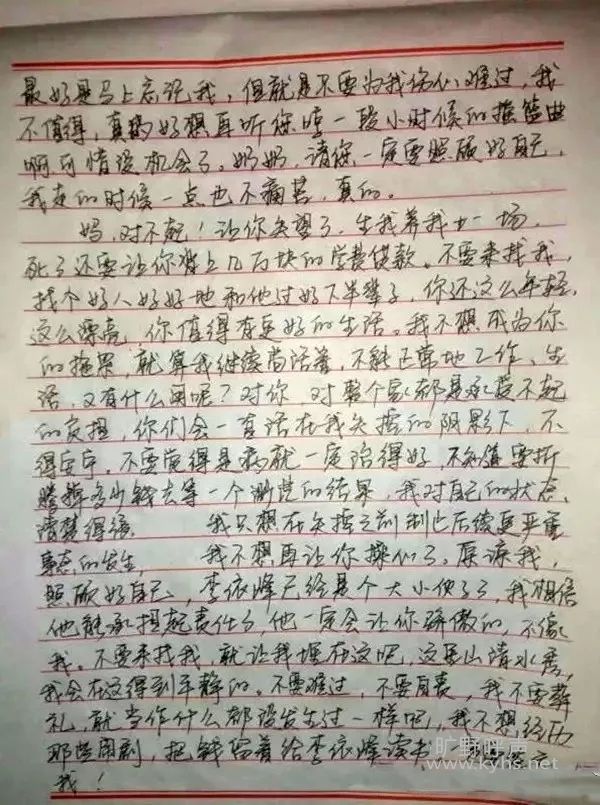 最好是马上忘记我，但就是不要为我伤心难过，我
不值得，真的好想再听您哼一段小时候的摇篮曲
啊可惜没机会了。奶奶，请您一定要照顾好自己，
我走的时候一点也不痛苦，真的。
妈，对不起！让你失望了，生我养我廿一场，
死了还要让你背上几万块的学费贷款。不要来找我，
找个好人好好地和他过好下半辈子，你还这么年轻，
这么漂亮，你值得有更好的生活。我不想成为你
的拖累，就算我继续苟活着，不能正常地工作、生
活，又有什么用呢？对你，对整个家都是承受不起
的负担，你们会一直活在我失控的阴影下，不
得安宁。不要觉得是病就一定治得好，不知值要折
腾掉多少钱去等一个渺茫的结果，我对自己的状态
清楚得很 我只想在失控之前制止后续更严重
事态的发生， 我不想再让你操心了。原谅我，
照顾好自己，李依峰已经是个大小伙子了，我相信
他能承担起责任了，他一定会让你骄傲的，不像
我。不要来找我，就让我埋在这吧，这里山清水秀，
我会在这得到平静的。不要难过，不要自责，我不要葬
礼，就当作什么都没发生过一样吧，我不想经历
那些闹剧，把钱留着给李依峰读书
我！
旷野呼声
www.kyhs.net